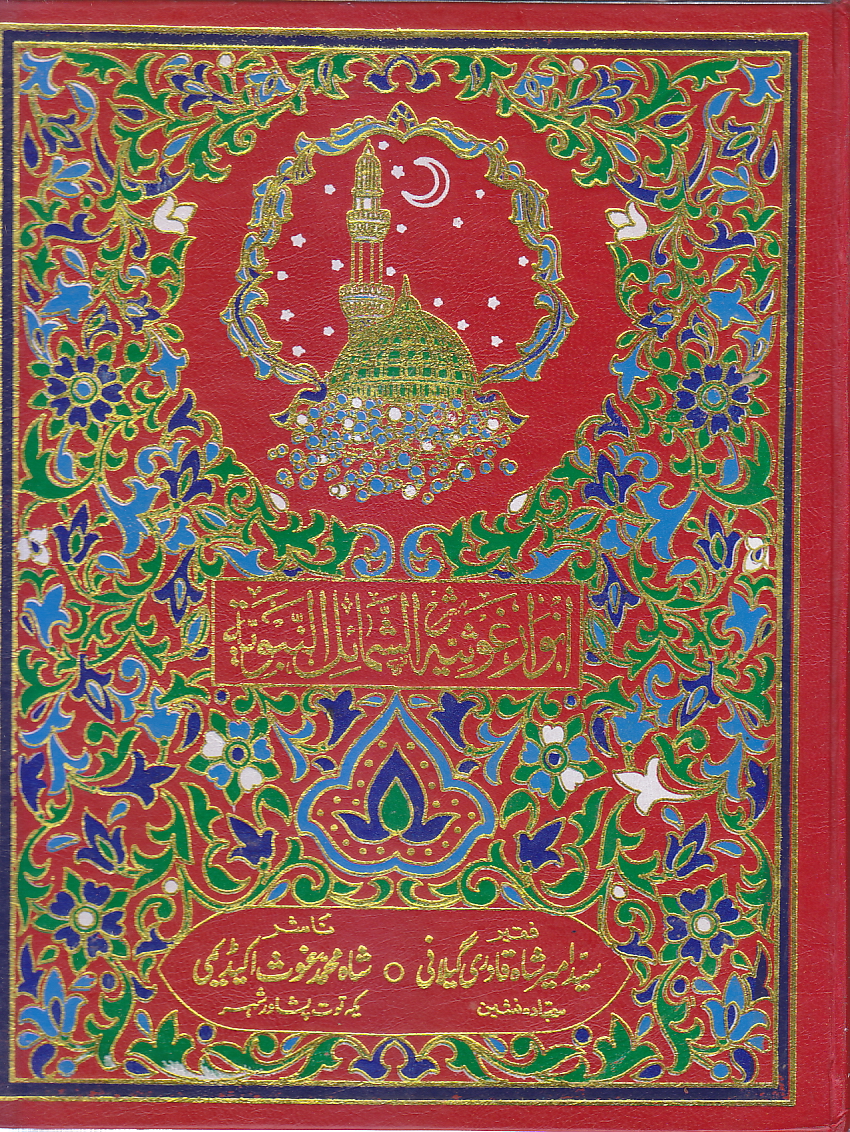 انوار غوثیہ شرح الشمائل النبویہ
فقیر
سید امیر شاہ قادری گیلانی
سجادہ نشین
ناشر
شاہ محمد غوث اکیڈیمی
یکہ توت پشاور شہر